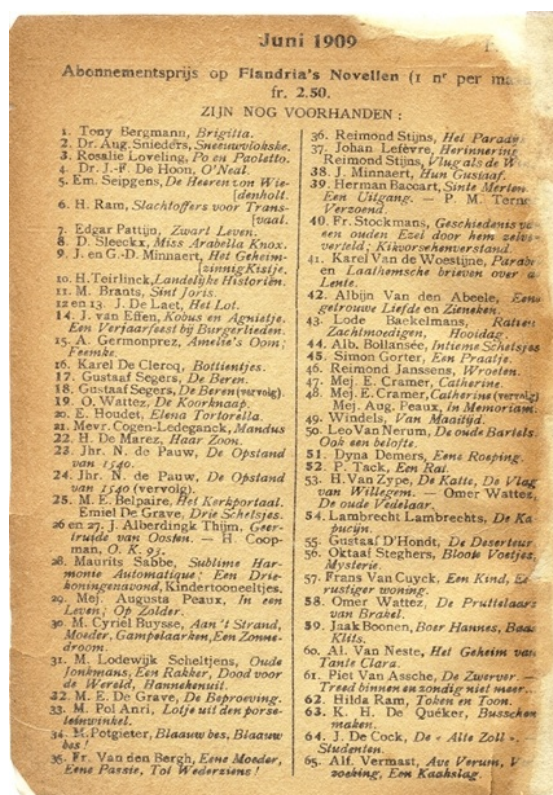 Juni 1909
Abonnementsprijs op Flandria's Novellen (1 nr per
fr. 2.50.
ZIJN NOG VOORHANDEN :
1. Tony Bergmann, Brigitta.
2. Dr. Aug. Snieders, Sneeuwvlokske.
3. Rosalie Loveling, Po en Paoletto.
4. Dr. J.-F. De Hoon, O'Neal.
5. Em. Seipgens, De Heeren von Wie-
[denholt.
6. H. Ram, Slachtoffers voor Trans-
[vaal.
7. Edgar Pattijn, Zwart Leven.
8. D. Sleeckx, Miss Arabella Knox.
9. J. en G.-D. Minnaert, Het Geheim-
[zinnig Kistje.
10. H. Teirlinck, Landelijke Historien.
11. M. Brants, Sint Joris.
12 en 13. J. De Laet, Het Lot.
14. J. van Effen, Kobus en Agnietje.
Een Verjaarfeest bij Burgerlieden.
15. A. Germonprez, Amelie's Oom;
Feemke.
16. Karel De Clercq, Bottientjes.
17. Gustaaf Segers, De Beren.
18. Gustaaf Segers, De Beren (vervolg).
19. O. Wattez, De Koorknaap.
20. E. Houdet, Elena Tortorella.
21. Mevr. Cogen-Ledeganck, Mandus
22. H. De Marez, Haar Zoon.
23. Jhr. N. de Pauw, De Opstand
van 1540.
24. Jhr. N. de Pauw, De Opstand
van 1540 (vervolg).
25. M. E. Belpaire, Het Kerkportaal.
Emiel De Grave, Drie Schetsjes.
26 en 27. J. Alberdingk Thijm, Geer-
truide van Oosten. — H. Coop-
man, O. K. 93.
28. Maurits Sabbe, Sublime Har-
monie Automatique ; Een Drie-
koningenavond, Kindertooneeltjes.
29. Mej. Augusta Peaux, In een
Leven ; Op Zolder.
30. M. Cyriel Buysse, Aan 't Strand,
Moeder, Gampelaarken, Een Zonne-
droom.
31. M. Lodewijk Scheltjens, Oude
Jonkmans, Een Rakker, Dood voor
de Wereld, Hannekenuit.
32. M. E. De Grave, De Beproeving.
33. M. Pol Anri, Lotje uit den porse-
leinwinkel.
34. M. Potgieter, Blaauw bes, Blaauw
bes !
35. Fr. Van den Bergh, Eene Moeder,
Eene Passie, Tot Wederziens !
36. Reimond Stijns, Het Paradijs
37. Johan Lefèvre, Herinnering
Reimond Stijns, Vlug als de
38. J. Minnaert, Hun Gustaaf.
39. Herman Baccart, Sinte Merten.
Een Uitgang. — P. M.
Verzoend.
40. Fr. Stockmans, Geschiedenis
een ouden Ezel door hem zelve
verteld ; Kikvorschenverstand.
41. Karel Van de Woestijne,
en Laathemsche brieven over
Lente.
42. Albijn Van den Abeele, Eene
getrouwe Liefde en Zieneken.
43. Lode Baekelmans, Ratten
Zachtmoedigen, Hooidag.
44. Alb. Bollansée, Intieme Schetsjes
45. Simon Gorter, Een Praatje.
46. Reimond Janssens, Wroeten.
47. Mej. E. Cramer, Catherine.
48. Mej. E. Cramer, Catherine (vervolg)
Mej. Aug. Peaux, In Memoriam.
49. Windels, Van Maaitijd.
50. Leo Van Nerum, De oude Bartels.
Ook een belofte.
51. Dyna Demers, Eene Roeping.
52. P. Tack, Een Rat.
53. H. Van Zype, De Katte, De Vlag
van Willegem. — Omer Wattez,
De oude Vedelaar.
54. Lambrecht Lambrechts, De Ka-
pucijn.
55. Gustaaf D'Hondt, De Deserteur.
56. Oktaaf Steghers, Bloote Voetjes,
Mysterie.
57. Frans Van Cuyck, Een Kind,
rustiger woning.
58. Omer Wattez, De Pruttelaars
van Brakel.
59. Jaak Boonen, Boer Hannes, Baas
Klits.
60. Al. Van Neste, Het Geheim van
Tante Clara.
61. Piet Van Assche, De Zwerver. —
Treed binnen en zondig niet meer.
62. Hilda Ram, Token en Toon.
63. K. H. De Quéker, Busschen
maken.
64. J. De Cock, De « Alte Zoll ». —
Studenten.
65. Alf. Vermast, Ave Verum,
zoeking, Een Kaakslag.